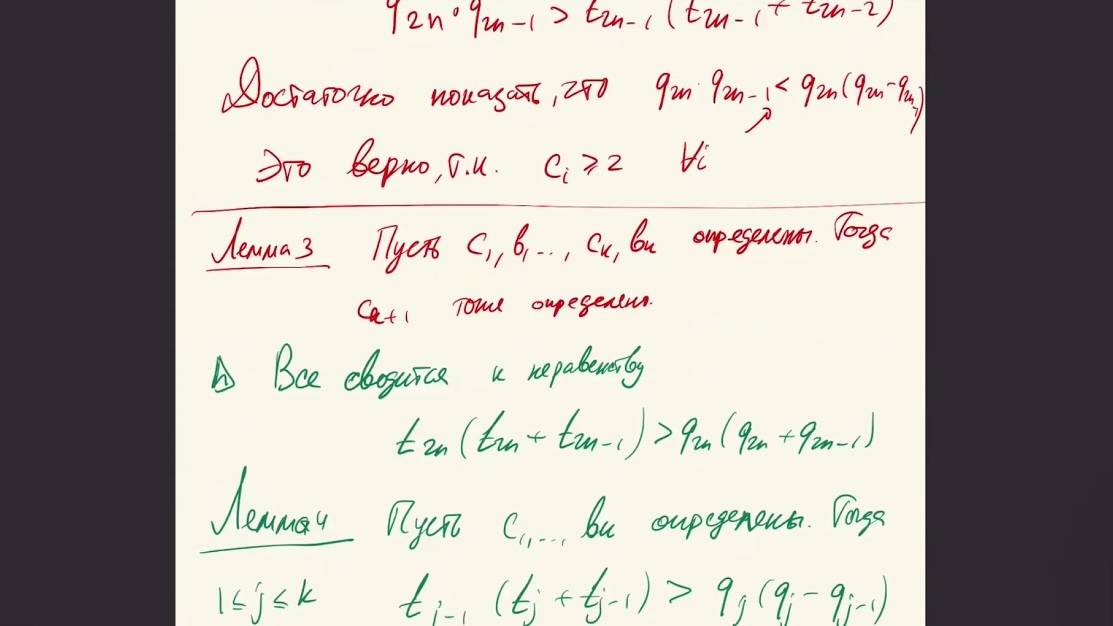 q₂ₙ · q₂ₙ₋₁ > t₂ₙ₋₁ (t₂ₙ₋₁ + t₂ₙ₋₂)
Достаточно показать, что q₂ₙ · q₂ₙ₋₁ < q₂ₙ(q₂ₙ - q₂ₙ₋₁)
Это верно, т.к. cᵢ ⩾ 2 ∀i
Лемма 3 Пусть c₁, b₁, ..., cₖ, bₖ определены. Тогда
cₖ₊₁ тоже определено.
Все сводится к неравенству
t₂ₙ (t₂ₙ + t₂ₙ₋₁) > q₂ₙ (q₂ₙ + q₂ₙ₋₁)
Лемма 4 Пусть c₁, ..., bₖ определены. Тогда
1 ≤ j ≤ k tⱼ₋₁ (tⱼ + tⱼ₋₁) > qⱼ (qⱼ - qⱼ₋₁)